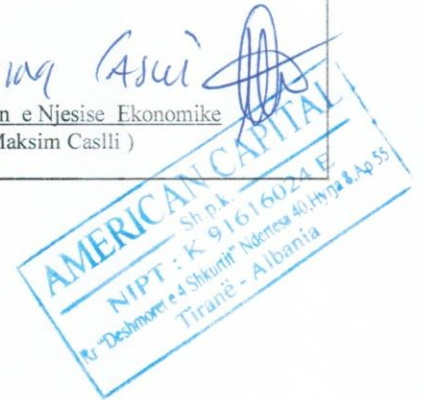 Caslli
n e Njesise Ekonomike
Maksim Caslli )
AMERICAN CAPITAL
Sh.p.k.
NIPT : K 91616024 E
Rr "Deshmoret e 4 Shkurtit" Ndertesa 40, Hyrja 8, Ap 55
Tiranë - Albania